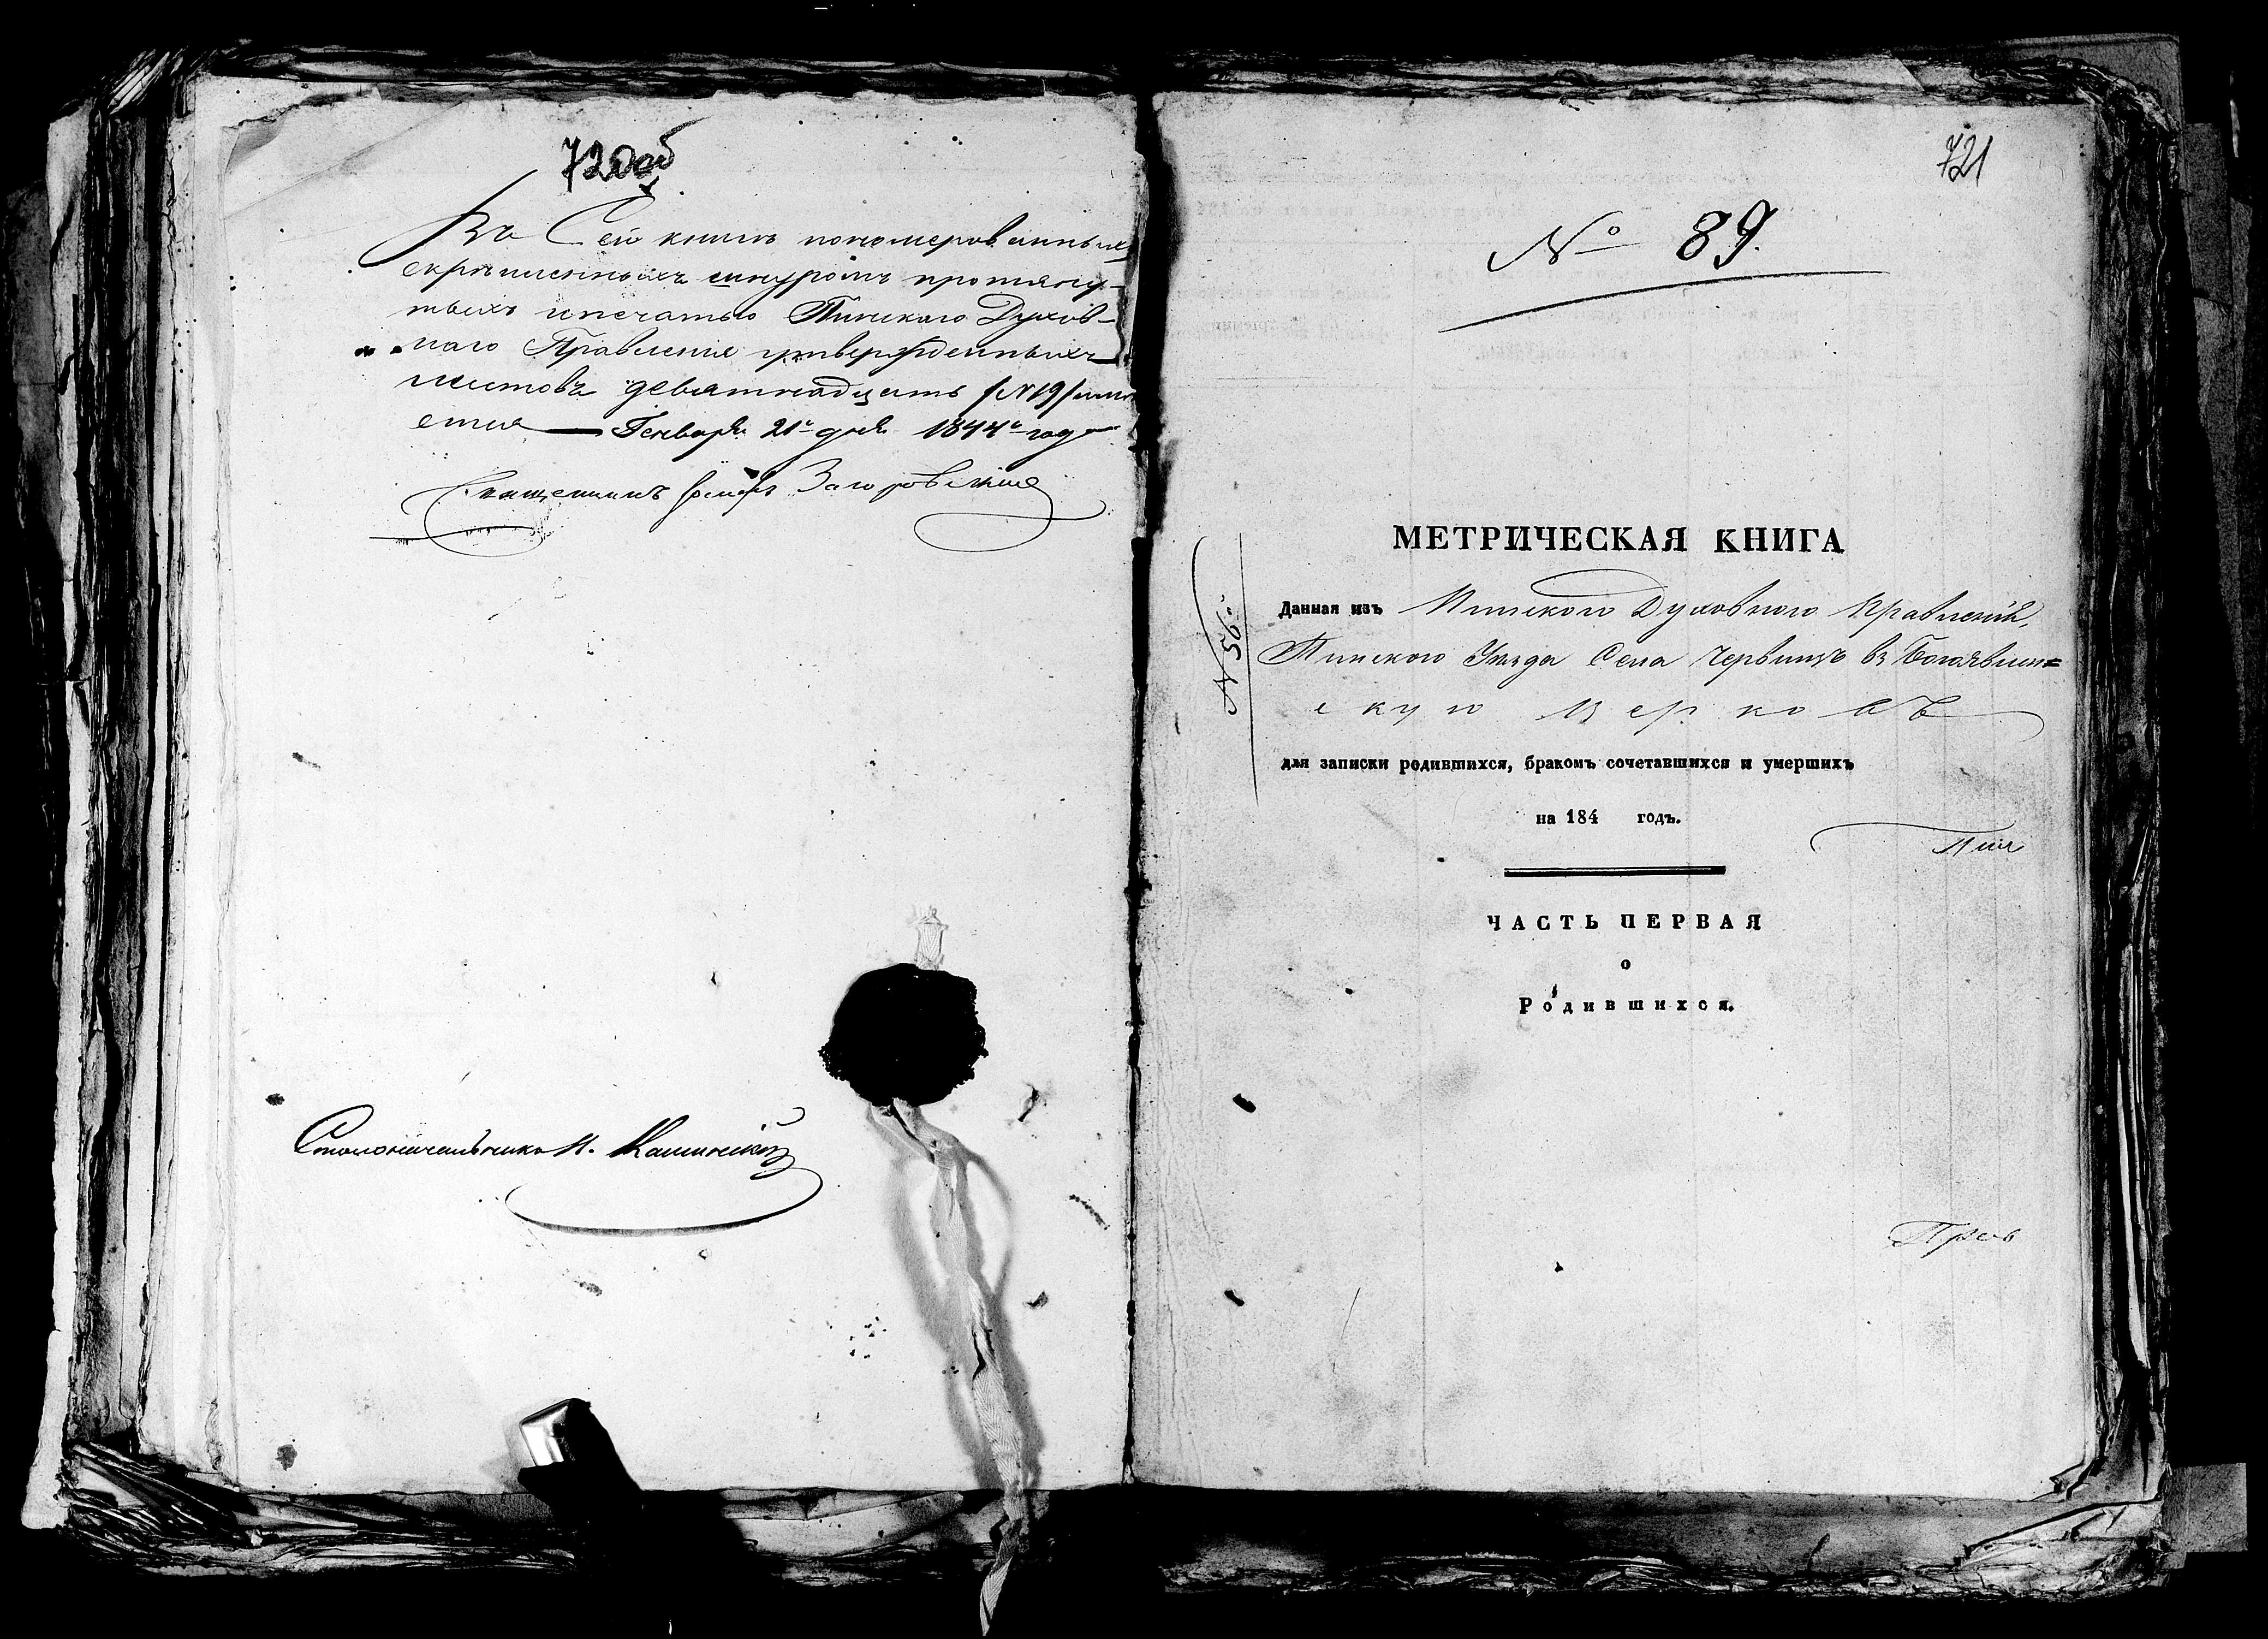 720об
Въ Сей книгѣ пономерованныхъ
скрѣпленныхъ шнуромъ протяну-
тыхъ и печатью Пинскаго Духов-
наго Правленія утвержденныхъ
листовъ девятнадцать /№19/
Генваря 21го дня 1844го года
Священникъ Загоровскій
Столоначальникъ
721
№ 89.
МЕТРИЧЕСКАЯ КНИГА
№ 56.
Данная изъ Пинскаго Духовнаго Правленія,
Пинскаго Уѣзда Села Червищъ въ Богоявлен=
скую Церковь
для записки родившихся, бракомъ сочетавшихся и умершихъ
на 184 годъ.
Пин
ЧАСТЬ ПЕРВАЯ
о
Родившихся.